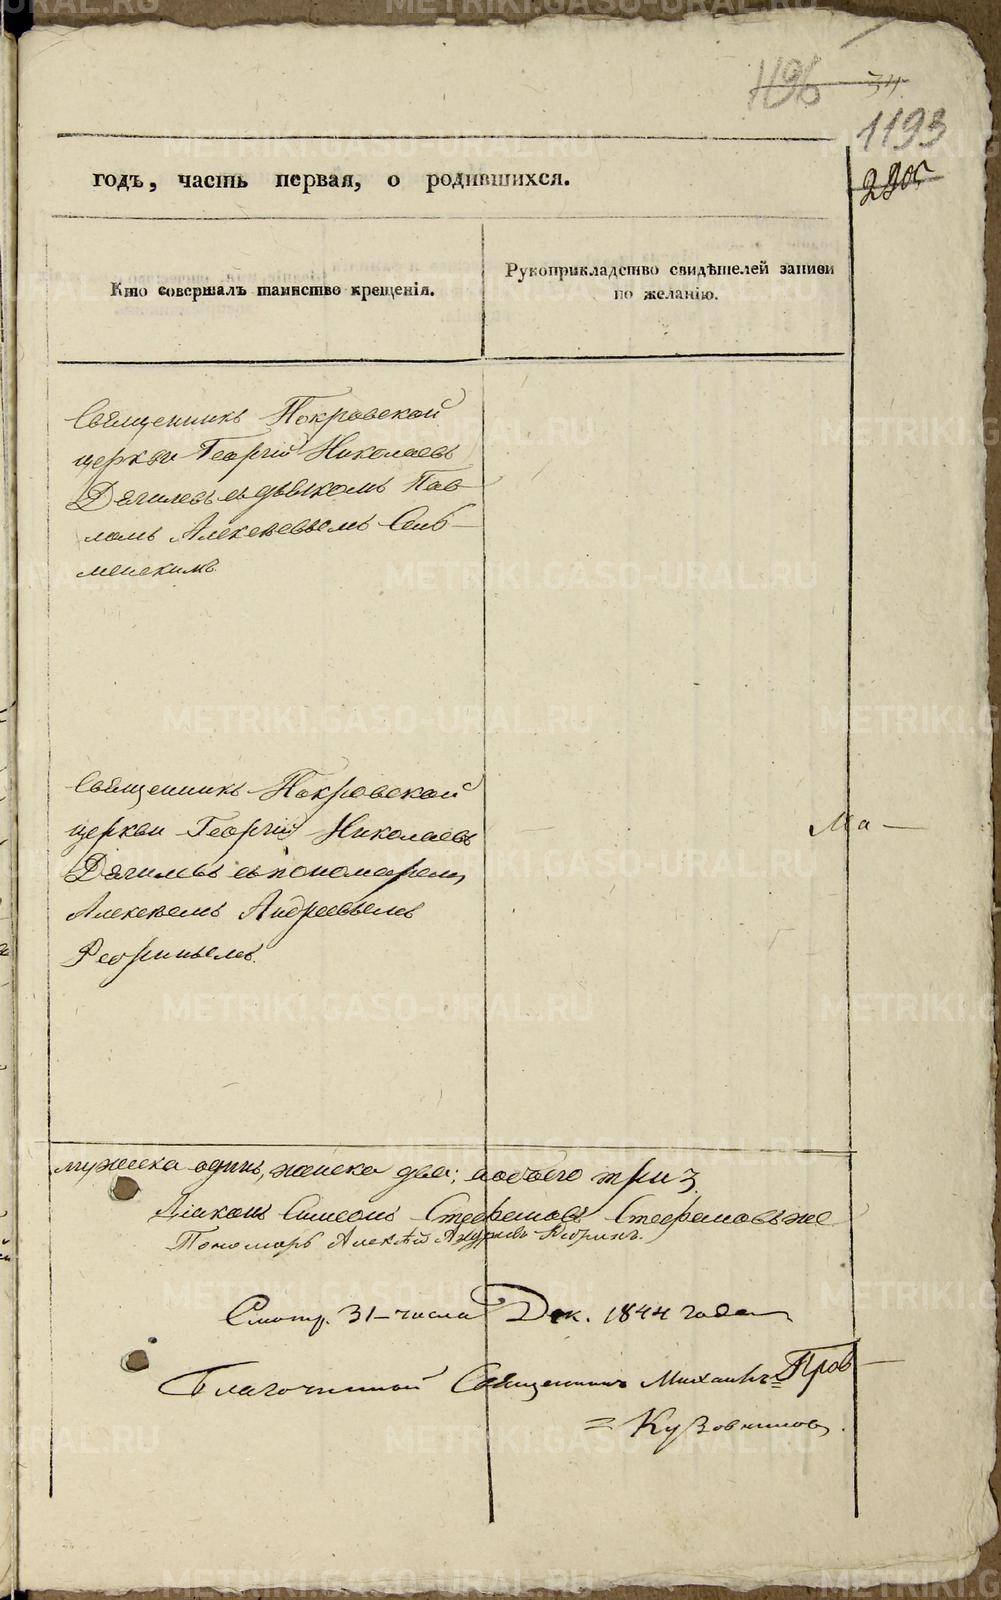 1196 34
1193
2205
годъ, часть первая, о родившихся.
Кто совершалъ таинство крещенія.
Рукоприкладство свидѣтелей записи
по желанію.
Священникъ Покровской
церкви Георгій Николаевъ
съ дьякономъ Пав-
ломъ Алексѣевымъ
Священникъ Покровской
церкви Георгій Николаевъ
съ пономаремъ
Алексѣемъ Андреевымъ
Ма-
мужеска одинъ, женска два; обоего три 3.
Діаконъ Симеонъ Стефановъ Стефановъ же
Пономарь Алексѣй
Смотр. 31-числа Дек. 1844 года
Благочинный Священникъ Михаилъ Пров-
= Кузовниковъ.
METRIKI.GASO-URAL.RU